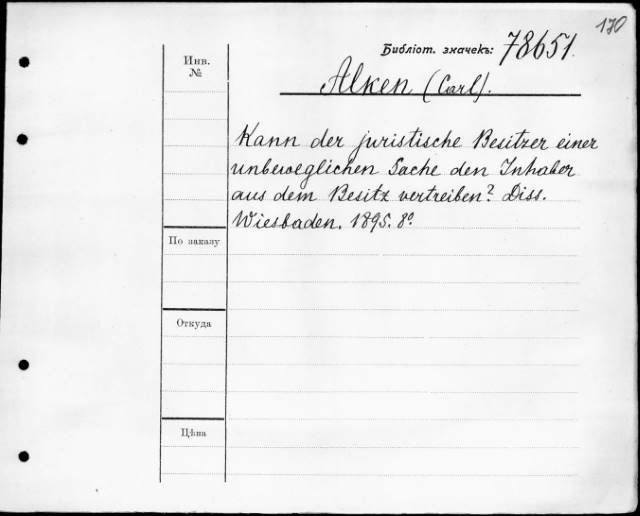 170
Библіот. значекъ: 78651.
Инв.
№
Alken (Carl).
Kann der juristische Besitzer einer
unbeweglichen Sache den Inhaber
aus dem Besitz vertreiben? Diss.
Wiesbaden. 1895. 8º.
По заказу
Откуда
Цѣна